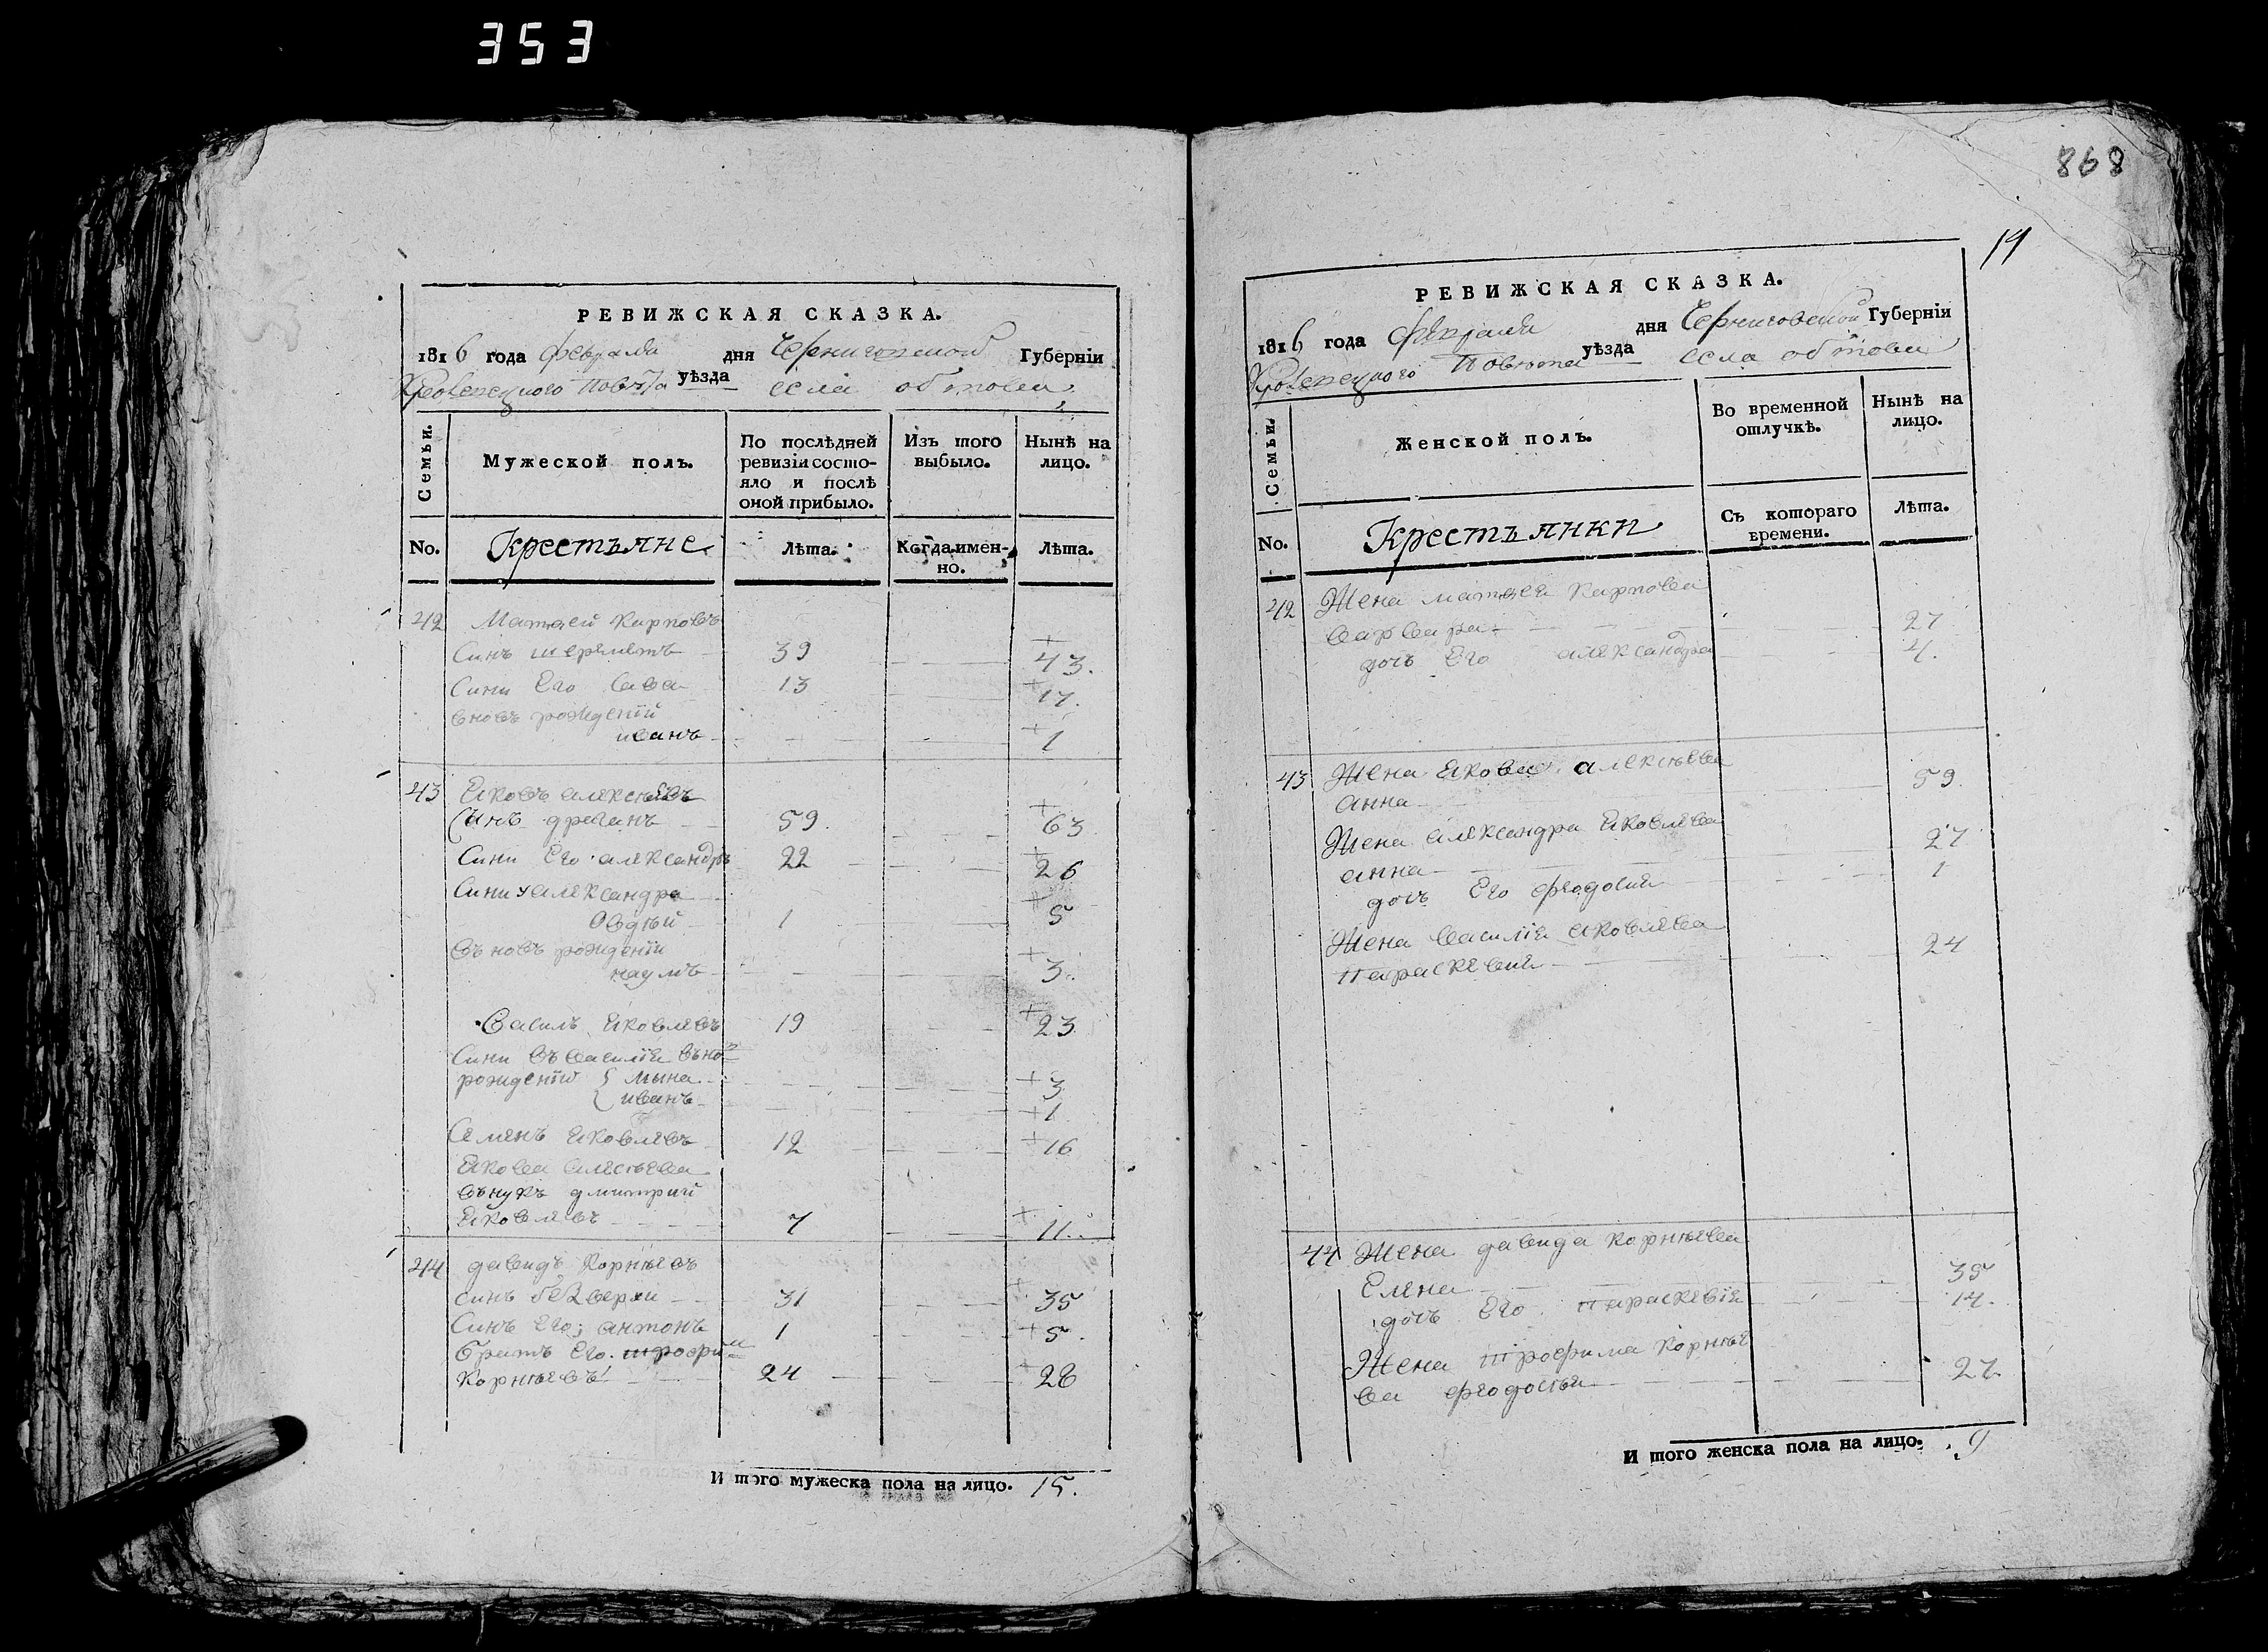 353
868
19
РЕВИЖСКАЯ СКАЗКА.
1816 года февраля дня Черниговской Губерніи
Кролевецкого повѣта уѣзда села обтова
Семьи.
Мужеской полъ.
По послѣдней ревизіи состо-
яло и послѣ
оной прибыло.
Изъ того выбыло.
Нынѣ на лицо.
No.
Крестъяне
Лѣта.
Когда имен-
но.
Лѣта.
42 Матвей Карповъ
Синъ шереметъ 39 43.
Сини Его Сава 13 17.
вновь рожденій
иванъ 1
43 Яковъ алексѣевъ
Синъ дреганъ 59. 63
Сини Его александръ 22 26
Сини у александра
Овдѣй 1 5
въновъ рожденій
наумъ 3.
Василъ Яковлевъ 19 23
Сини въ василія въно
рожденій { мына 3
{ иванъ 1
Семенъ Яковлевъ 12 16
Якова алесѣева
вънукъ дмитрий
Яковлевъ 7 11.
44 давидъ Корнѣевъ
синъ безверхи 31 35
Синъ его; антонъ 1 5.
братъ Его трофим
Корнѣевъ 24 28
И того мужеска пола на лицо. 15.
РЕВИЖСКАЯ СКАЗКА.
1816 года февраля дня Черниговской Губерніи
Кролевецкого Повѣта уѣзда села обтова
Семьи.
Женской полъ.
Во временной
отлучкѣ.
Нынѣ на
лицо.
No.
Крестъянки
Съ котораго
времени.
Лѣта.
42 Жена матвея Карпова
варвара 27
дочъ Его александра 4.
43 Жена Якова алексѣева
анна 59.
Жена александра Яковлева
анна 27
дочъ Его феодосия 1
Жена василія Яковлева
параскевия 24
44 Жена давида Корнѣева
Елена 35
дочъ Его параскевія 14.
Жена трофима Корнѣе
ва феодосья 27.
И того женска пола на лицо. 9